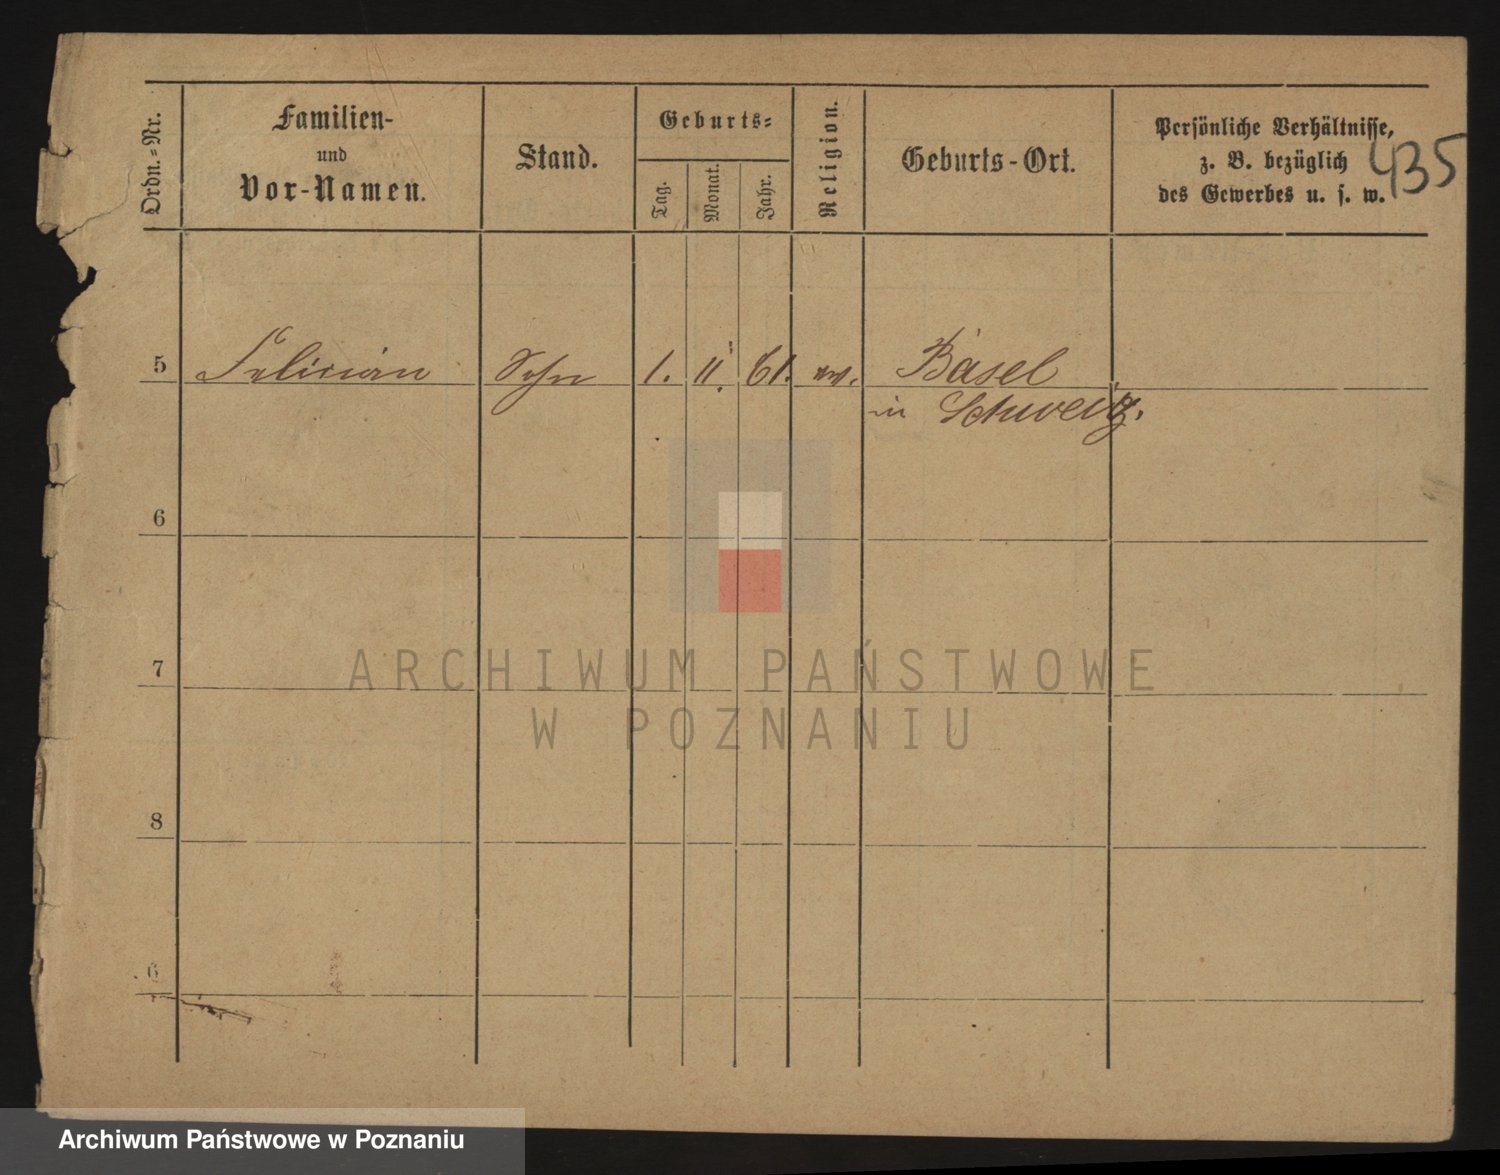 Ordn.-Nr.
Familien-
und
Vor-Namen.
Stand.
Geburts-
Tag.
Monat.
Jahr.
Religion.
Geburts-Ort.
Persönliche Verhältnisse,
z. B. bezüglich
des Gewerbes u. s. w.
435
5 Felician Sohn 1. 11. 61. ev. Basel
in Schweiz.
6
7
8
ARCHIWUM PAŃSTWOWE
W POZNANIU
Archiwum Państwowe w Poznaniu